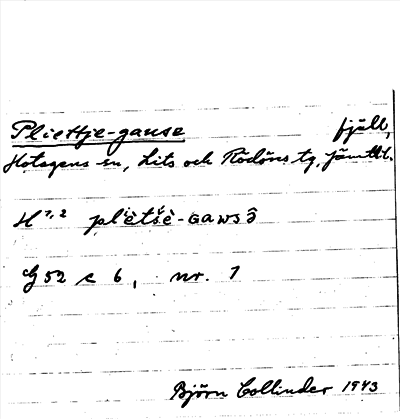 Pliettje-gause fjäll,
Hotagens sn, Lits och Rödöns tg, Jämtl.
H 7, 2 plètšè-GawsÔ
G 52 c 6, nr. 1
Björn Collinder 1943